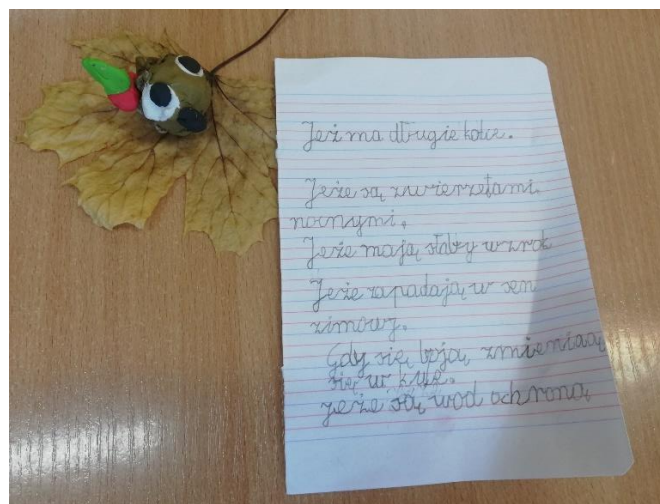 Jeż ma długie kolce.
Jeże są zwierzętami
nocnymi.
Jeże mają słaby wzrok
Jeże zapadają w sen
zimowy.
Gdy się boją zmieniają
się w kulę.
Jeże są wod ochroną